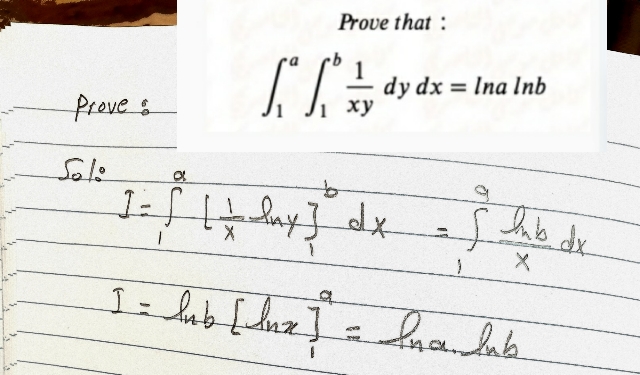 Prove that :
∫₁ᵃ ∫₁ᵇ 1/xy dy dx = lna lnb
Prove :
Sol:
I = ∫₁ᵃ [1/x lny]₁ᵇ dx = ∫₁ᵃ lnb/x dx
I = lnb [lnx]₁ᵃ = lna . lnb